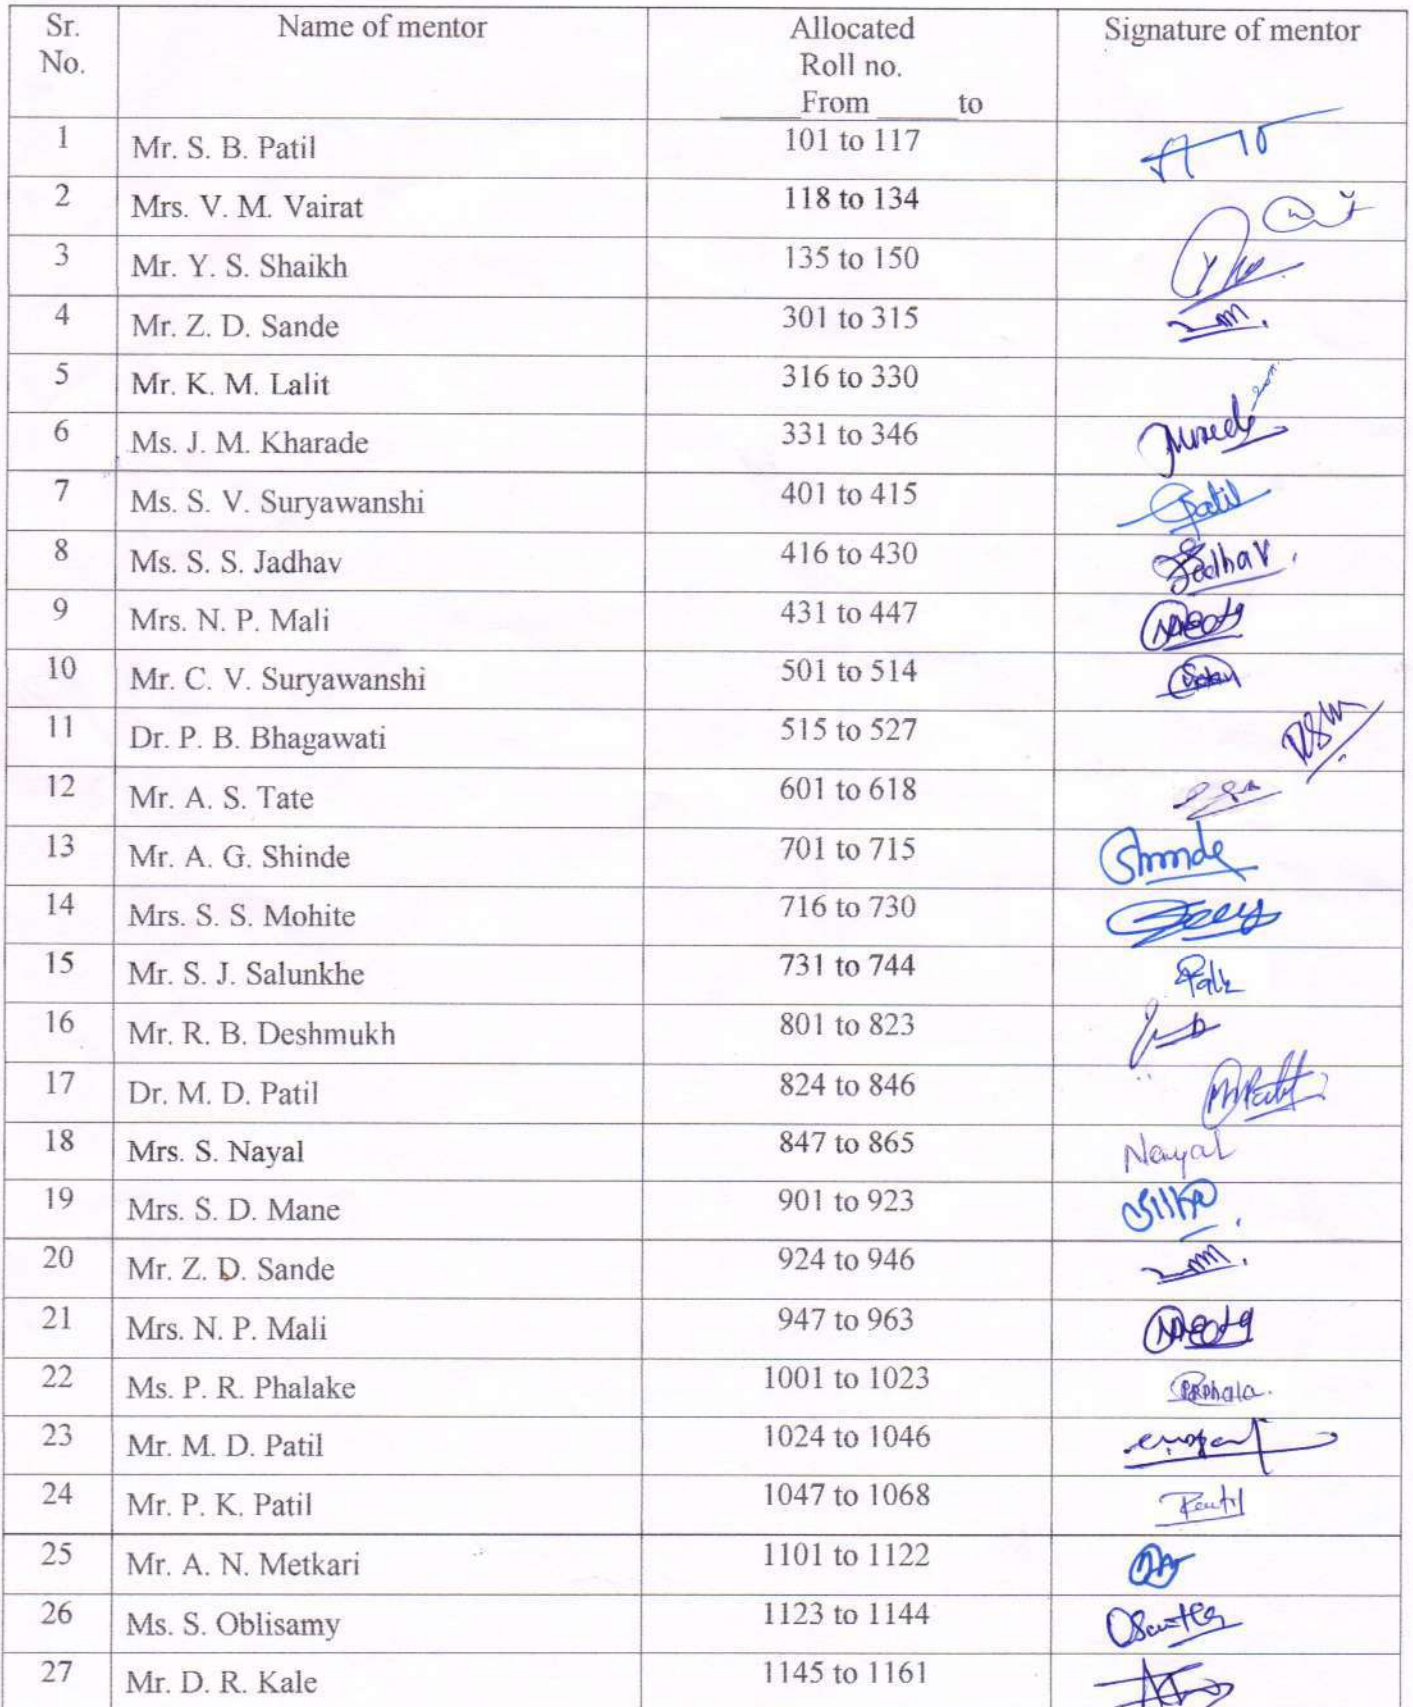 Sr. No. Name of mentor Allocated Roll no. From to Signature of mentor
1 Mr. S. B. Patil 101 to 117
2 Mrs. V. M. Vairat 118 to 134
3 Mr. Y. S. Shaikh 135 to 150
4 Mr. Z. D. Sande 301 to 315
5 Mr. K. M. Lalit 316 to 330
6 Ms. J. M. Kharade 331 to 346
7 Ms. S. V. Suryawanshi 401 to 415 Patil
8 Ms. S. S. Jadhav 416 to 430 Jadhav
9 Mrs. N. P. Mali 431 to 447
10 Mr. C. V. Suryawanshi 501 to 514
11 Dr. P. B. Bhagawati 515 to 527
12 Mr. A. S. Tate 601 to 618
13 Mr. A. G. Shinde 701 to 715 Shinde
14 Mrs. S. S. Mohite 716 to 730
15 Mr. S. J. Salunkhe 731 to 744
16 Mr. R. B. Deshmukh 801 to 823
17 Dr. M. D. Patil 824 to 846
18 Mrs. S. Nayal 847 to 865 Nayal
19 Mrs. S. D. Mane 901 to 923
20 Mr. Z. D. Sande 924 to 946
21 Mrs. N. P. Mali 947 to 963
22 Ms. P. R. Phalake 1001 to 1023
23 Mr. M. D. Patil 1024 to 1046
24 Mr. P. K. Patil 1047 to 1068
25 Mr. A. N. Metkari 1101 to 1122
26 Ms. S. Oblisamy 1123 to 1144
27 Mr. D. R. Kale 1145 to 1161